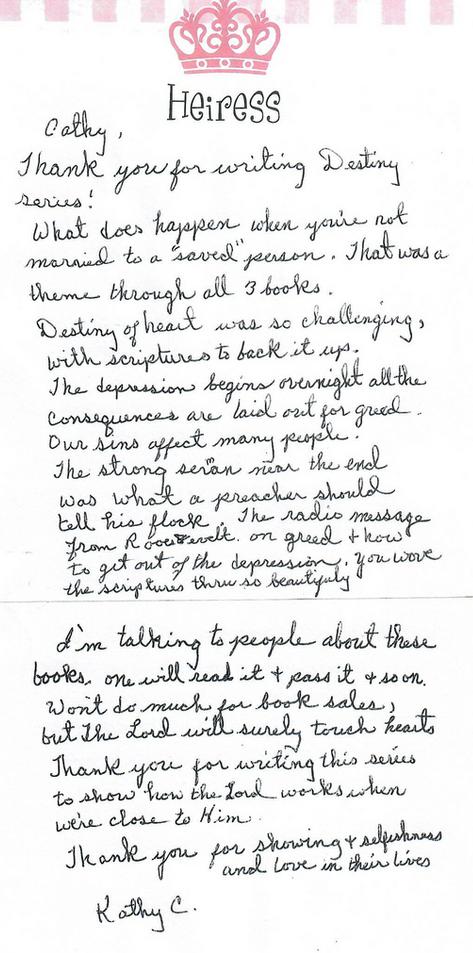 Heiress
Cathy,
Thank you for writing Destiny
series!
What does happen when you're not
married to a "saved" person. That was a
theme through all 3 books.
Destiny of heart was so challenging,
with scriptures to back it up.
The depression begins overnight all the
consequences are laid out for greed.
Our sins affect many people.
The strong serman near the end
was what a preacher should
tell his flock. The radio message
from Roosevelt. on greed & how
to get out of the depression. You wove
the scriptures thru so beautifuly
I'm talking to people about these
books. one will read it & pass it & so on.
Won't do much for book sales,
but The Lord will surely touch hearts
Thank you for writing this series
to show how the Lord works when
we're close to Him.
Thank you for showing & selfishness
and love in their lives
Kathy C.